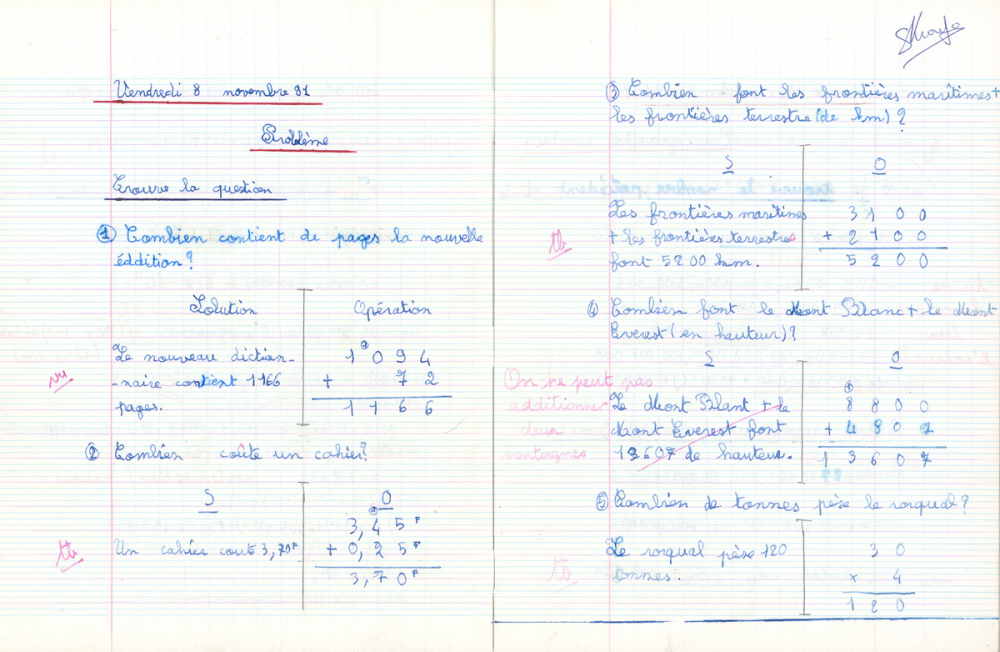 Vendredi 8 novembre 91
Problème
Trouve la question
① Combien contient de pages la nouvelle
éddition?
Solution
Opération
Le nouveau diction-
-naire contient 1166
pages.
vu
1 0 9 4
+ 7 2
1 1 6 6
② Combien coûte un cahier?
S
O
Un cahier coute 3,70F
tb
3,45F
+ 0,25F
3,70F
③ Combien font les frontières maritimes +
les frontières terrestre (de km) ?
S
O
Les frontières maritimes
+ les frontières terrestres
font 5200 km.
tb
3 1 0 0
+ 2 1 0 0
5 2 0 0
④ Combien font le Mont Blanc + le Mont
Everest (en hauteur)?
S
O
Le Mont Blant + le
Mont Everest font
13607 de hauteur.
On ne peut pas
additionner
deux
montagnes
8 8 0 0
+ 4 8 0 7
1 3 6 0 7
⑤ Combien de tonnes pèse le rorqual?
Le rorqual pèse 120
tonnes.
3 0
x 4
1 2 0